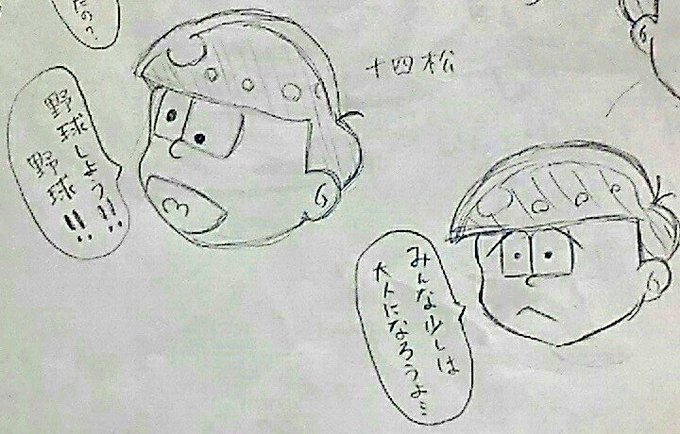 たの?
十四松
野球しよう!!
野球!!
みんな少しは
大人になろうよ…